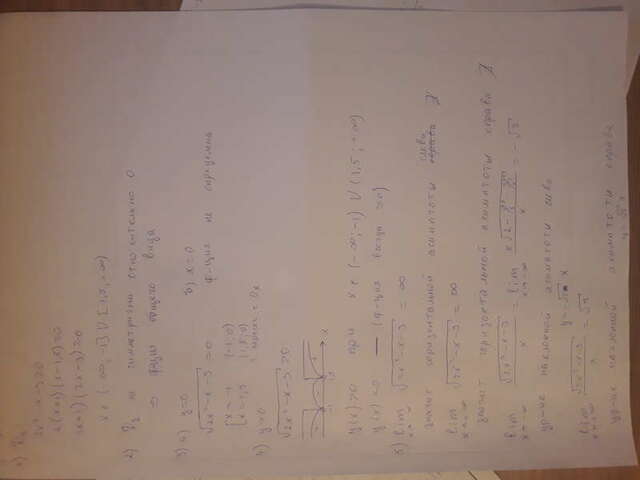 1) D_y
2x² - x - 3 ≥ 0
2(x+1)(x-1,5) ≥ 0
(x+1)(2x-3) ≥ 0
x ∈ (-∞; -1] U [1,5; +∞)
2) D_y не симметрично относительно 0
⇒ ф-ция общего вида
3) а) y=0 б) x=0
√(2x²-x-3) = 0 ф-ция не определена
[x = -1 (-1; 0)
[x = 1,5 (1,5; 0)
с осью Ox
4) y>0
√(2x²-x-3) > 0
-1 1,5 x
y(x)>0 при x ∈ (-∞; -1) U (1,5; +∞)
y(x)<0 — (ф-ция всегда ≥0)
5) lim x→-∞ √(2x²-x-3) = ∞
значит горизонтальной асимптоты слева ∄
lim x→+∞ √(2x²-x-3) = ∞
значит горизонтальной асимптоты справа ∄
lim x→-∞ √(2x²-x-3)/x = lim x→-∞ = -√2
ур-ние наклонной асимптоты слева
y = -√2 x
lim x→+∞ √(2x²-x-3)/x = √2
ур-ние наклонной асимптоты справа
y = √2 x